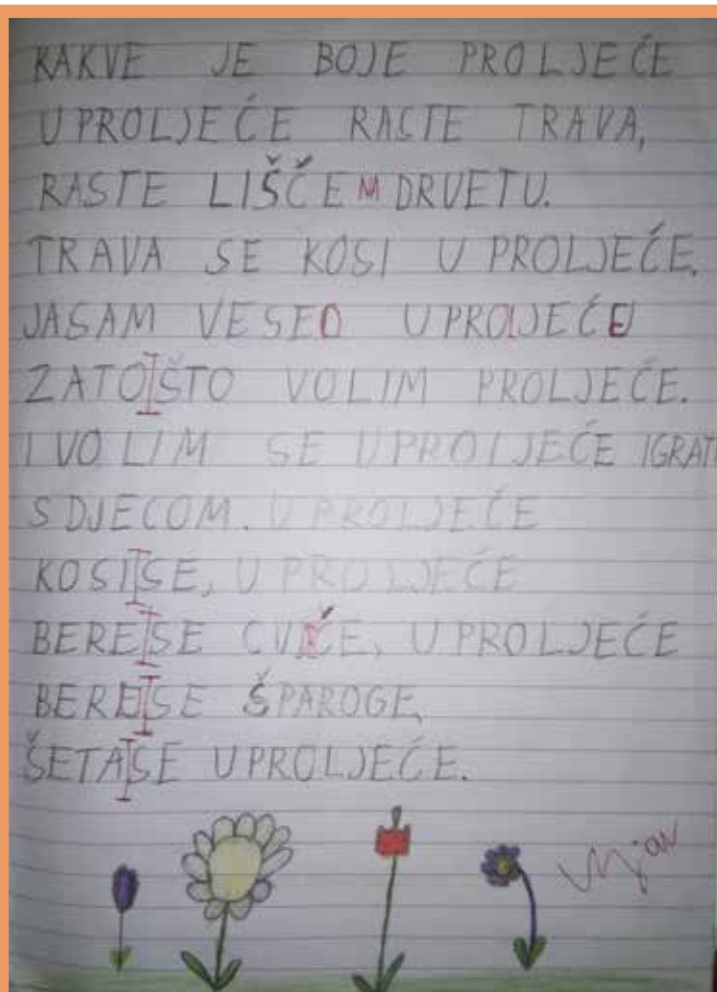 KAKVE JE BOJE PROLJEĆE
U PROLJEĆE RASTE TRAVA,
RASTE LIŠČE M DRVETU.
TRAVA SE KOSI U PROLJEĆE.
JASAM VESEO U PROLJEĆE
ZATOŠTO VOLIM PROLJEĆE.
I VOLIM SE U PROLJEĆE IGRATI
S DJECOM. U PROLJEĆE
KOSI SE, U PROLJEĆE
BERE SE CVIĆE, U PROLJEĆE
BERE SE ŠPAROGE,
ŠETA SE U PROLJEĆE.